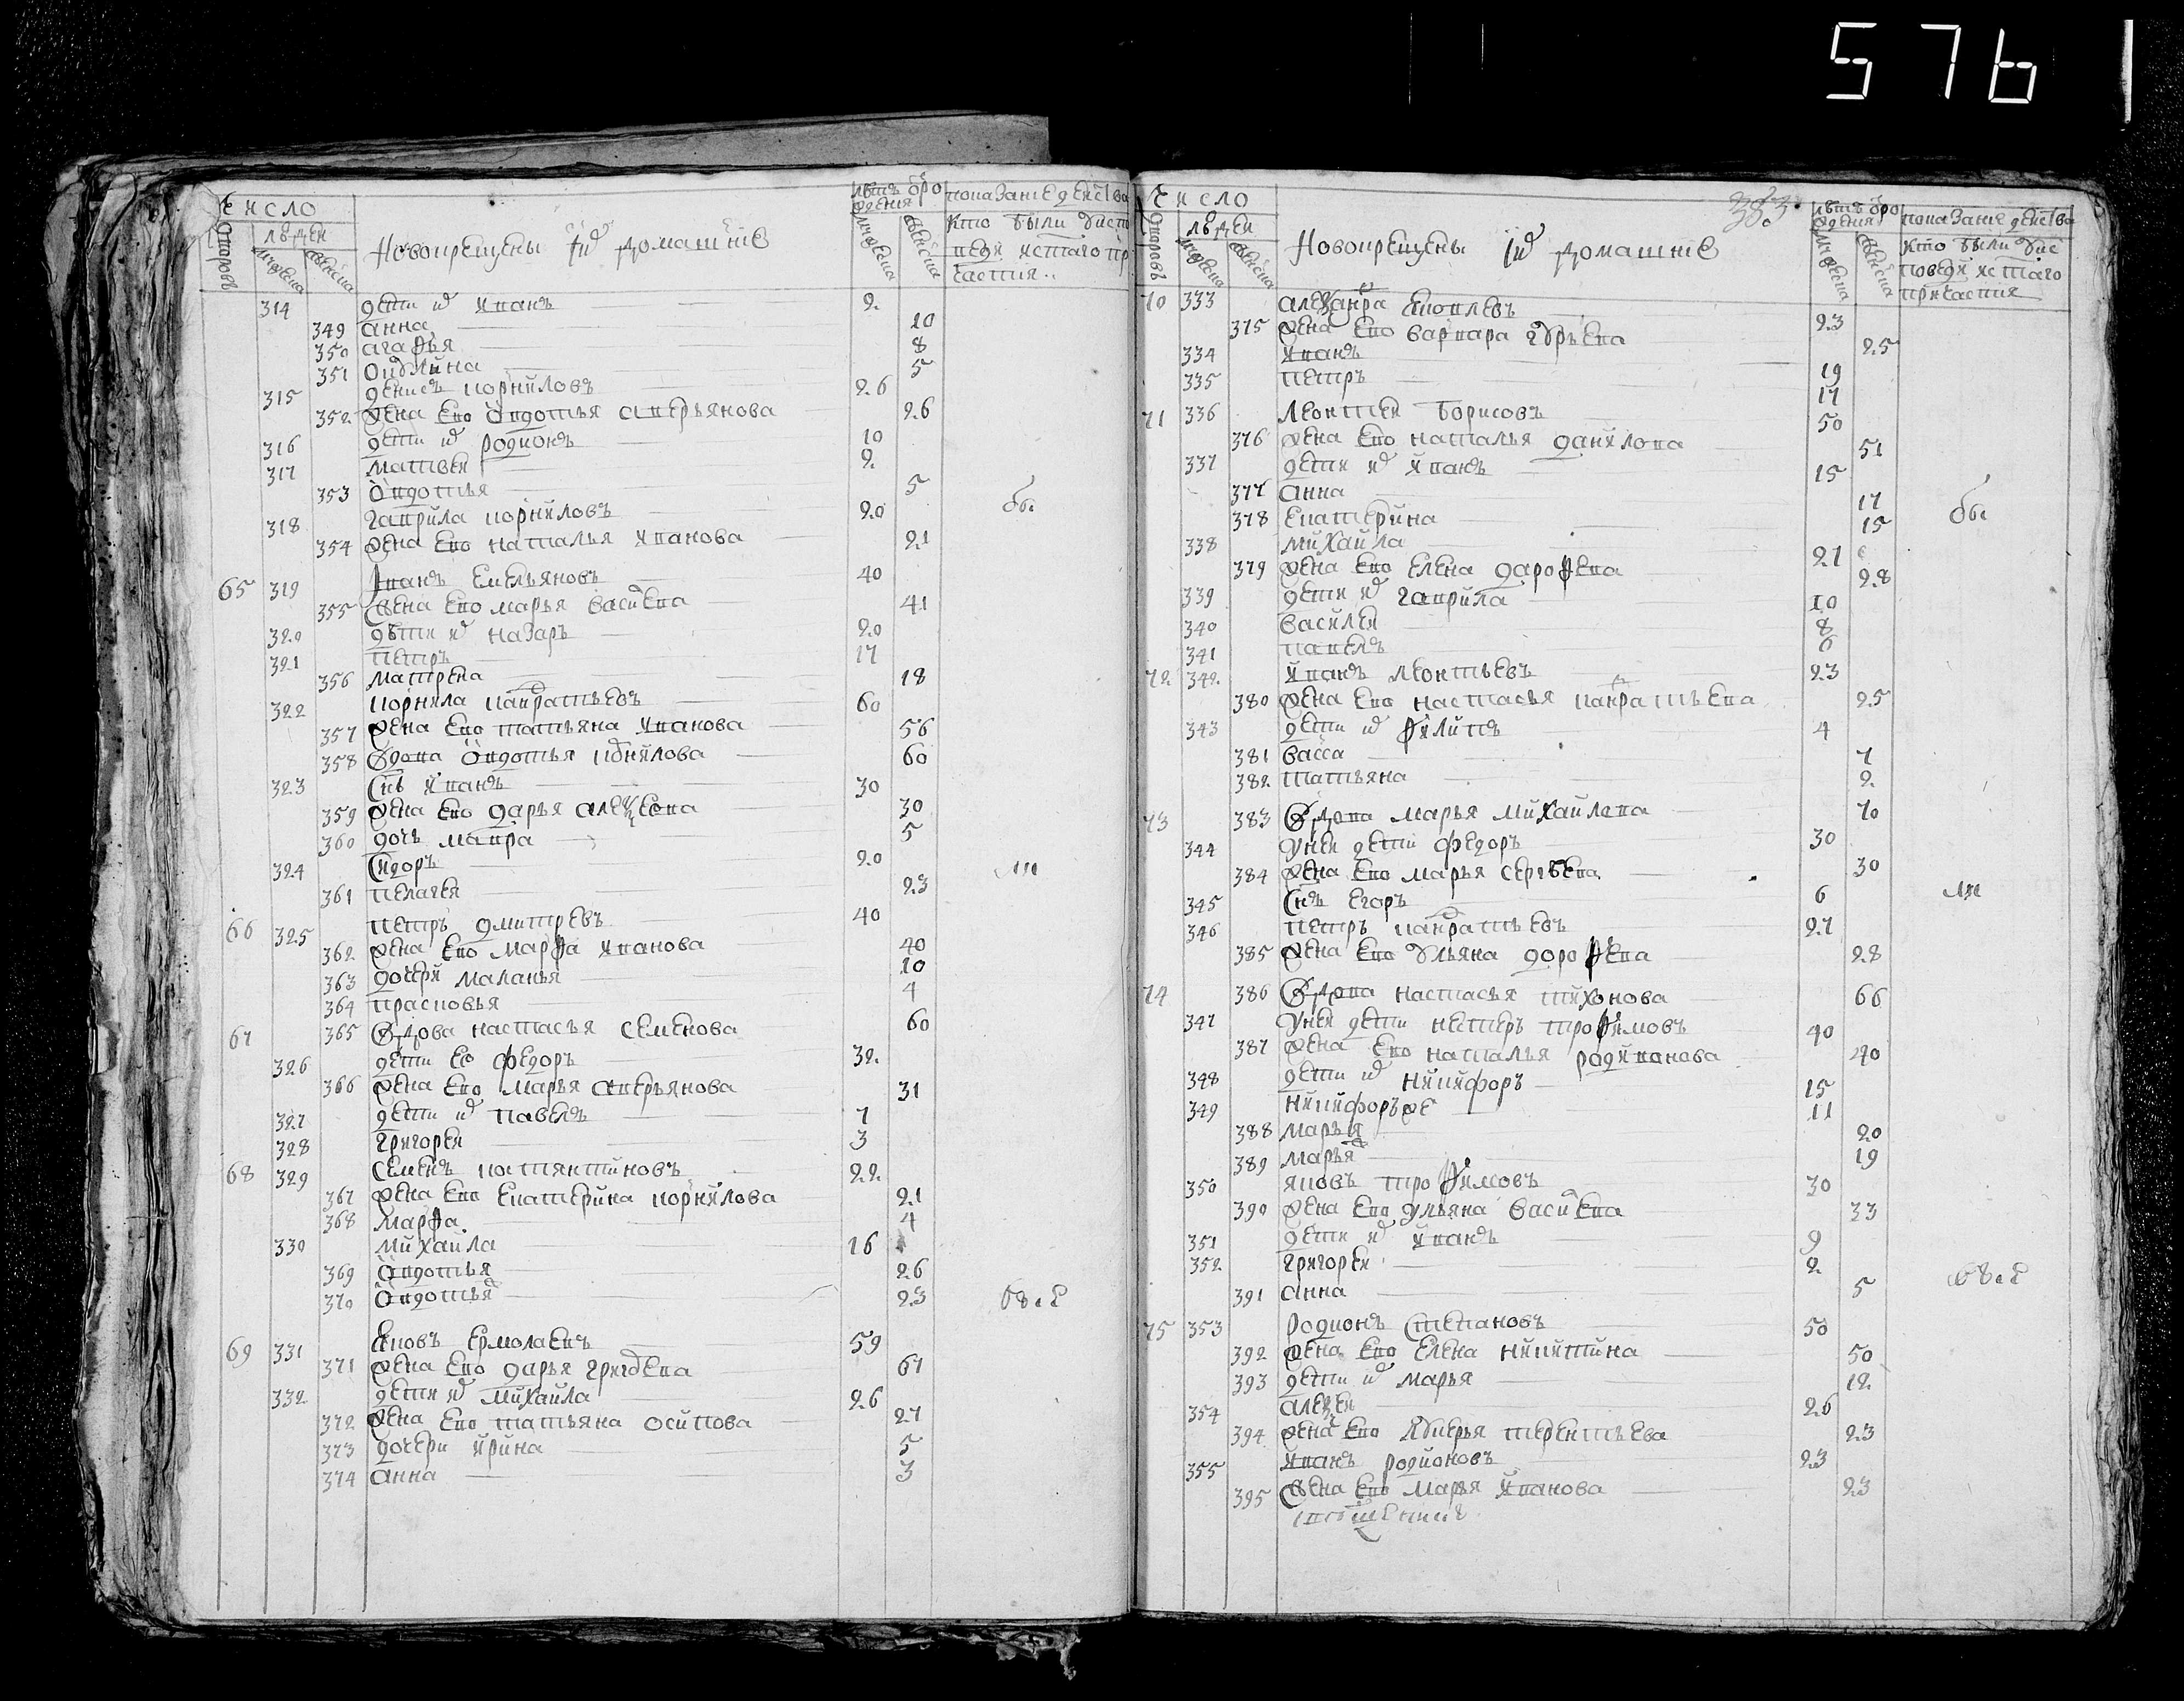 576
Число
Дворовъ
людей
мужеска
женска
Новокрещены и домашние
лѣтъ от рождения
мужеска
женска
показание действа
кто были у испо
веди и святаго пр
частия
314 дети их Иванъ 2
349 анна 10
350 агафья 8
351 5
315 денисъ корниловъ 26
352 жена ево авдотья аверьянова 26
316 дети их родионъ 10
317 матвей 2
353 авдотья 5
318 гаврила корниловъ 20
354 жена ево наталья иванова 21
65 319 Иванъ емельяновъ 40
355 жена ево марья васильева 41
320 дѣти их назаръ 20
321 петръ 17
356 матрена 18
322 корнила панкратьевъ 60
357 жена ево татьяна иванова 56
358 вдова авдотья 60
323 снъ иванъ 30
359 жена ево дарья алексеева 30
360 дочь мавра 5
324 сидоръ 20
361 пелагея 23
66 325 петръ дмитревъ 40
362 жена ево марфа иванова 40
363 дочери маланья 10
364 прасковья 4
67 365 вдова настасья семенова 60
326 дети ее федоръ 32
366 жена ево марья аверьянова 31
327 дети их павелъ 7
328 григорей 3
68 329 семенъ костянтиновъ 22
367 жена ево екатерина корнилова 21
368 марфа 4
330 михайла 16
369 авдотья 26
370 авдотья 23
69 331 яковъ ермолаевъ 59
371 жена ево дарья григорьева 67
332 дети их михайла 26
372 жена ево татьяна осипова 27
373 дочери ирина 5
374 анна 3
бы
ли
все
Число
383
Дворовъ
людей
мужеска
женска
Новокрещены их домашние
лѣтъ от рождения
мужеска
женска
показание действа
кто были у ис
поведи и святаго
причастия
70 333 александра яковлевъ 23
375 жена ево варвара 25
334 иванъ 19
335 петръ 17
71 336 леонтей борисовъ 50
376 жена ево наталья данилова 51
337 дети их иванъ 15
377 анна 17
378 екатерина 15
338 михайла 27
379 жена ево елена дарофева 28
339 дети их гаврила 10
340 василей 8
341 павелъ 6
72 342 иванъ леонтьевъ 23
380 жена ево настасья панкратьева 25
343 дети их филипъ 4
381 васса 7
382 татьяна 2
73 383 вдова марья михайлова 70
344 у ней дети федоръ 30
384 жена ево марья сергѣева 30
345 снъ егоръ 6
346 петръ панкратьевъ 27
385 жена ево ульяна дорофева 28
74 386 вдова настасья тихонова 66
347 у ней дети нестеръ трофимовъ 40
387 жена ево наталья родионова 40
348 дети их никифоръ 15
349 никифоръ же 11
388 марья 20
389 марья 19
350 яковъ трофимовъ 30
390 жена ево ульяна васильева 33
351 дети их иванъ 9
352 григорей 2
391 анна 5
75 353 родионъ степановъ 50
392 жена ево елена никитина 50
393 дети их марья 12
354 алексей 26
394 жена ево терентьева 23
355 иванъ родионовъ 23
395 жена ево марья иванова 23
бы
ли
все